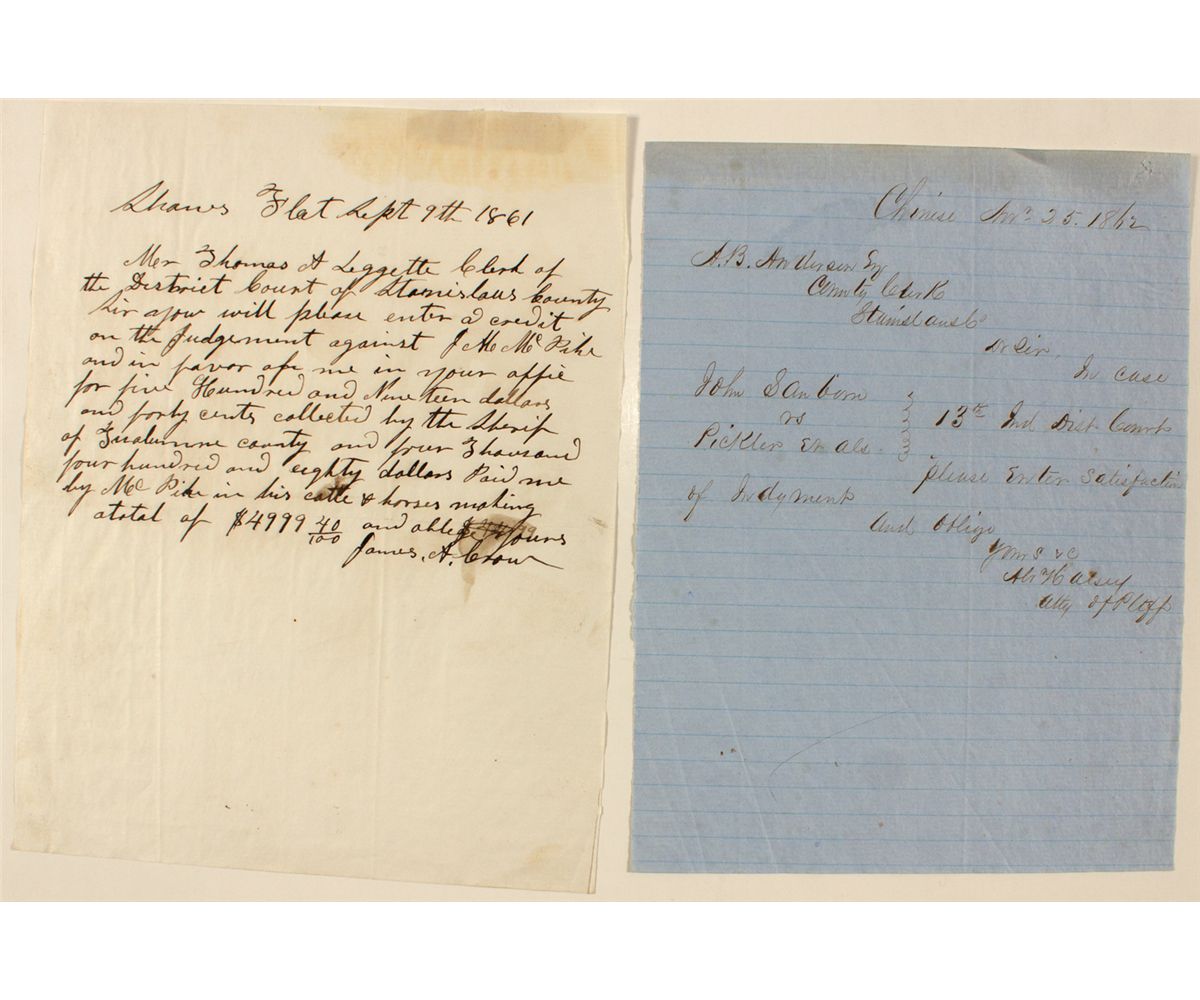 Shaws Flat Sept 9th 1861
Mer Thomas A Leggette Clerk of
the District Court of Stanislaus County
Sir you will please enter a credit
on the Judgement against J M McPike
and in favor of me in your offie
for five Hundred and Nineteen dollars
and forty cents collected by the Sherif
of Tualumne county and four Thousand
four hundred and eighty dollars Paid me
by McPike in his catle & horses making
atotal of $4999 40/100 and oblege yours
James. A. Crow
Chinese 25. 1862
A. B. Anderson Esq
County Clerk
Stanislaus Co
Dr Sir,
In case
John Sanborn
vs
Pickler Et als.
13th Jud Dist Court
please Enter Satisfaction
of Judgment
And Oblige
Yours &c
Halsey
Atty of Pltff